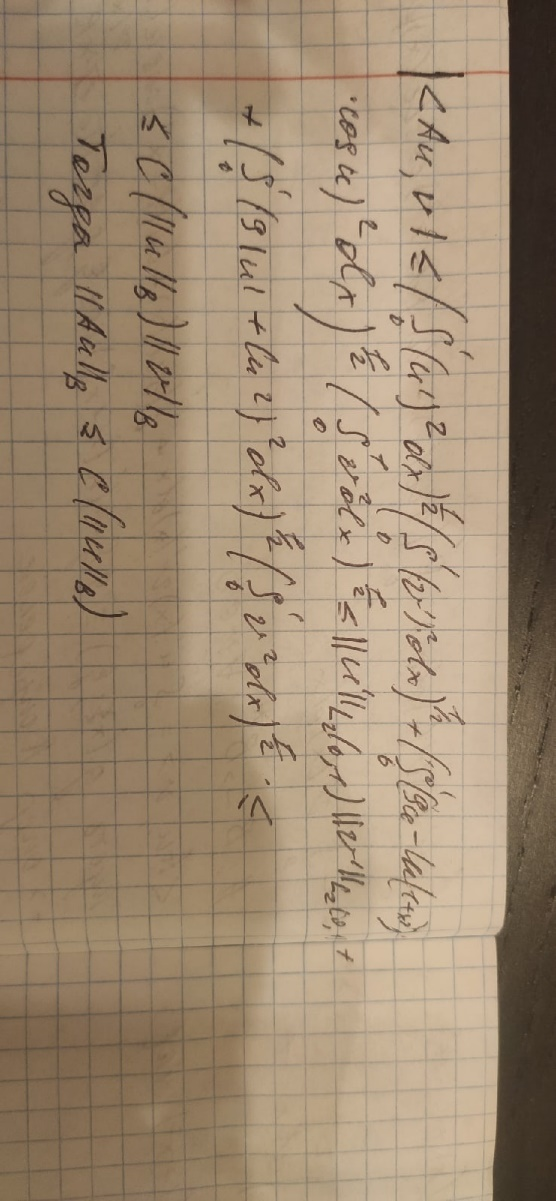 |<Au, v| ≤ (∫₀¹ (u')² dx)^½ (∫₀¹ (v')² dx)^½ + (∫₀¹ (9u - 4u(1+u)
·cos u)² dx)^½ (∫₀¹ v² dx)^½ ≤ ||u'||_{L₂(0,1)} ||v'||_{L₂(0,1)} +
+ (∫₀¹ (9|u| + u²)² dx)^½ (∫₀¹ v² dx)^½ · ≤
≤ C(||u||_B) ||v||_B
Тогда ||Au||_B ≤ C(||u||_B)